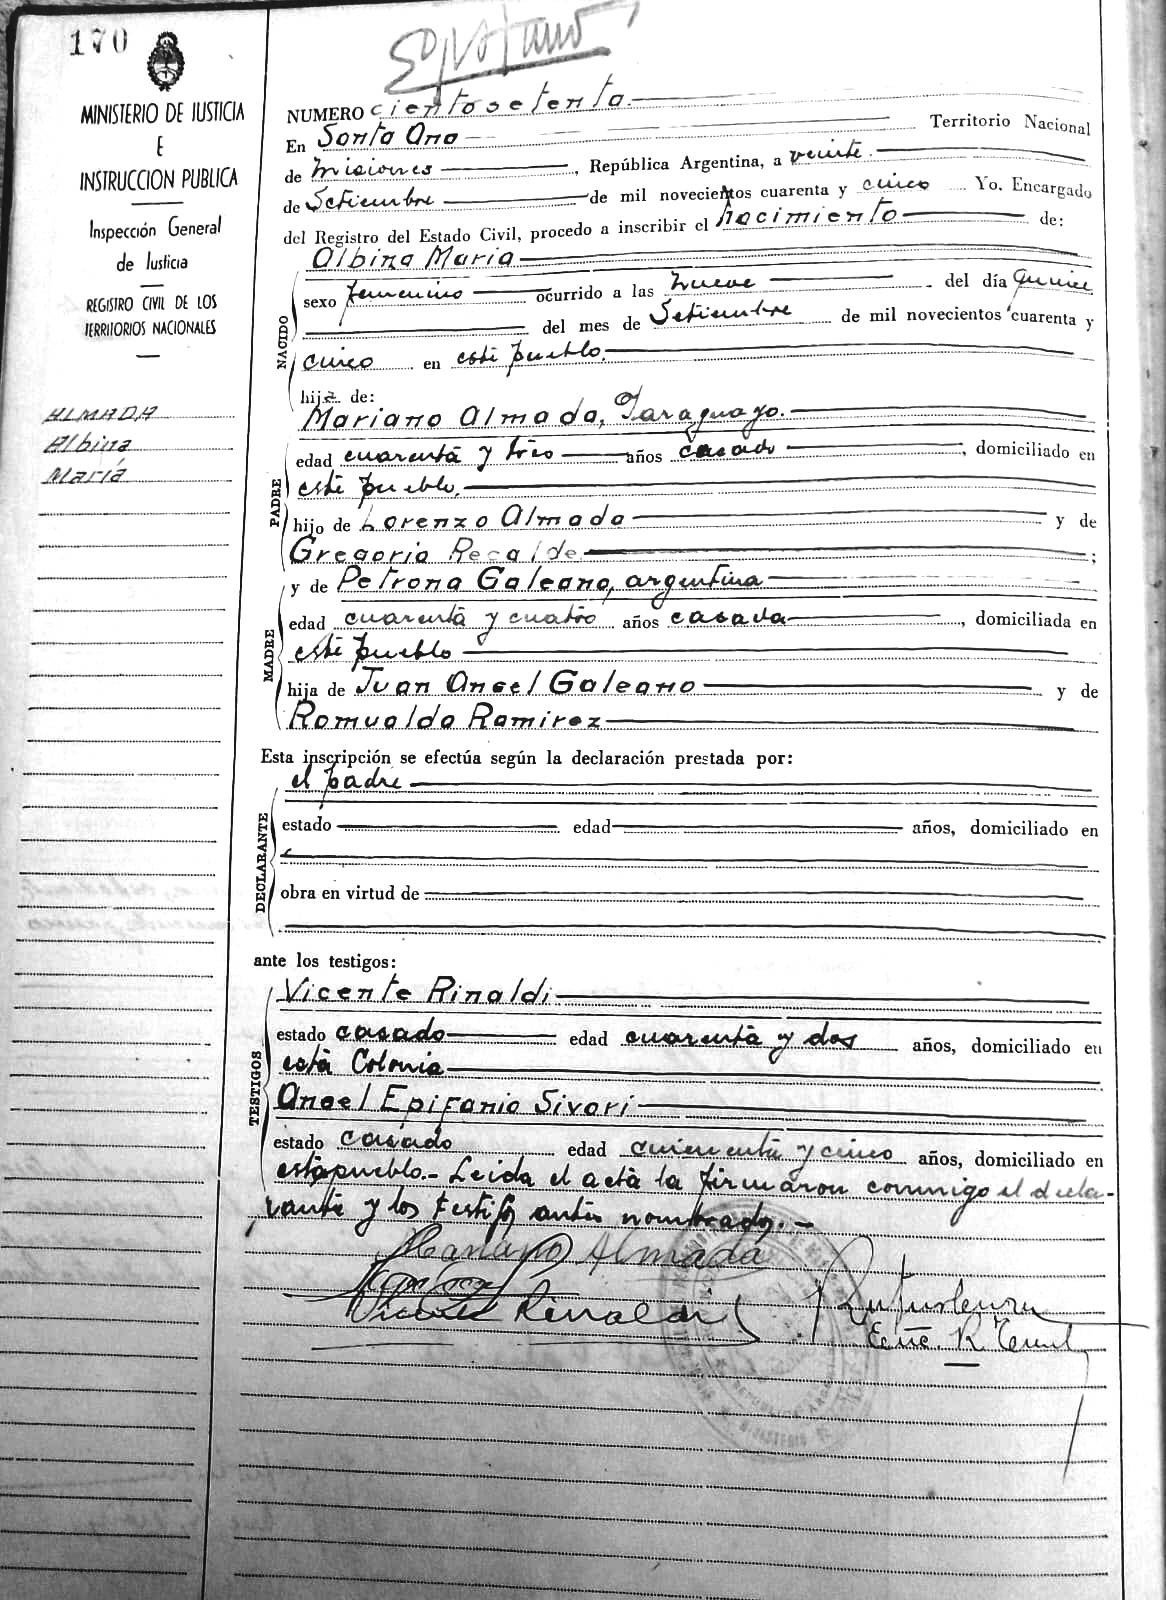 170
MINISTERIO DE JUSTICIA
E
INSTRUCCION PUBLICA
Inspección General
de Justicia
REGISTRO CIVIL DE LOS
TERRITORIOS NACIONALES
ALMADA
Albina
María
NUMERO ciento setenta.
En Santa Ana Territorio Nacional
de Misiones, República Argentina, a veinte.
de Setiembre de mil novecientos cuarenta y cinco Yo. Encargado
del Registro del Estado Civil, procedo a inscribir el nacimiento de:
NACIDO
Albina Maria
sexo femenino ocurrido a las nueve del día quince
del mes de Setiembre de mil novecientos cuarenta y
cinco en este pueblo.
hija de:
PADRE
Mariano Almada, Paraguayo.
edad cuarenta y tres años casado, domiciliado en
este pueblo.
hijo de Lorenzo Almada y de
Gregoria Recalde;
MADRE
y de Petrona Galeano, argentina
edad cuarenta y cuatro años casada, domiciliada en
este pueblo
hija de Juan Angel Galeano y de
Romualda Ramirez
Esta inscripción se efectúa según la declaración prestada por:
DECLARANTE
el padre
estado edad años, domiciliado en
obra en virtud de
ante los testigos:
TESTIGOS
Vicente Rinaldi
estado casado edad cuarenta y dos años, domiciliado en
esta Colonia
Angel Epifanio Sivori
estado casado edad cincuenta y cinco años, domiciliado en
este pueblo.- Leida el acta la firmaron conmigo el decla-
rante y los testigos antes nombrados.-
Mariano Almada
Vicente Rinaldi